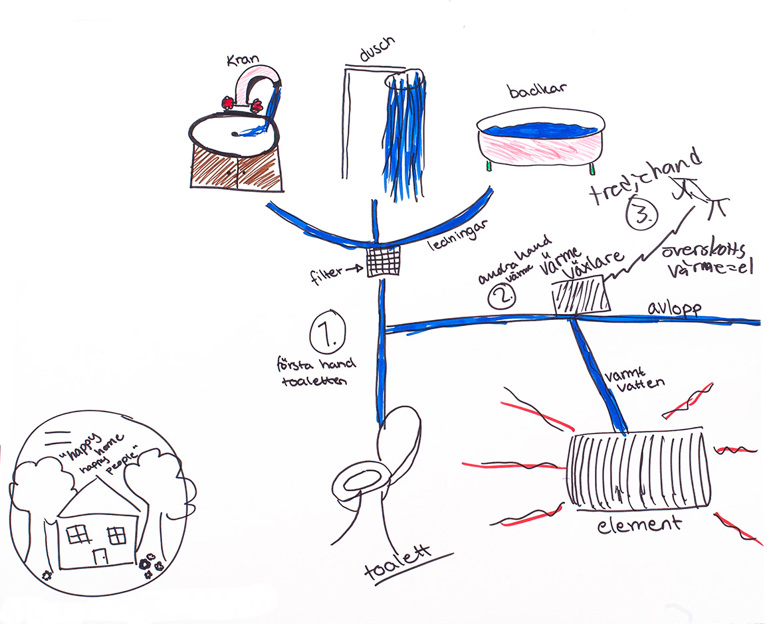 Kran
dusch
badkar
ledningar
filter
1.
första hand
toaletten
2.
andra hand
värme
värme
växlare
3.
tredje hand
överskotts
värme=el
avlopp
varmt
vatten
element
toalett
"happy
home
happy
people"